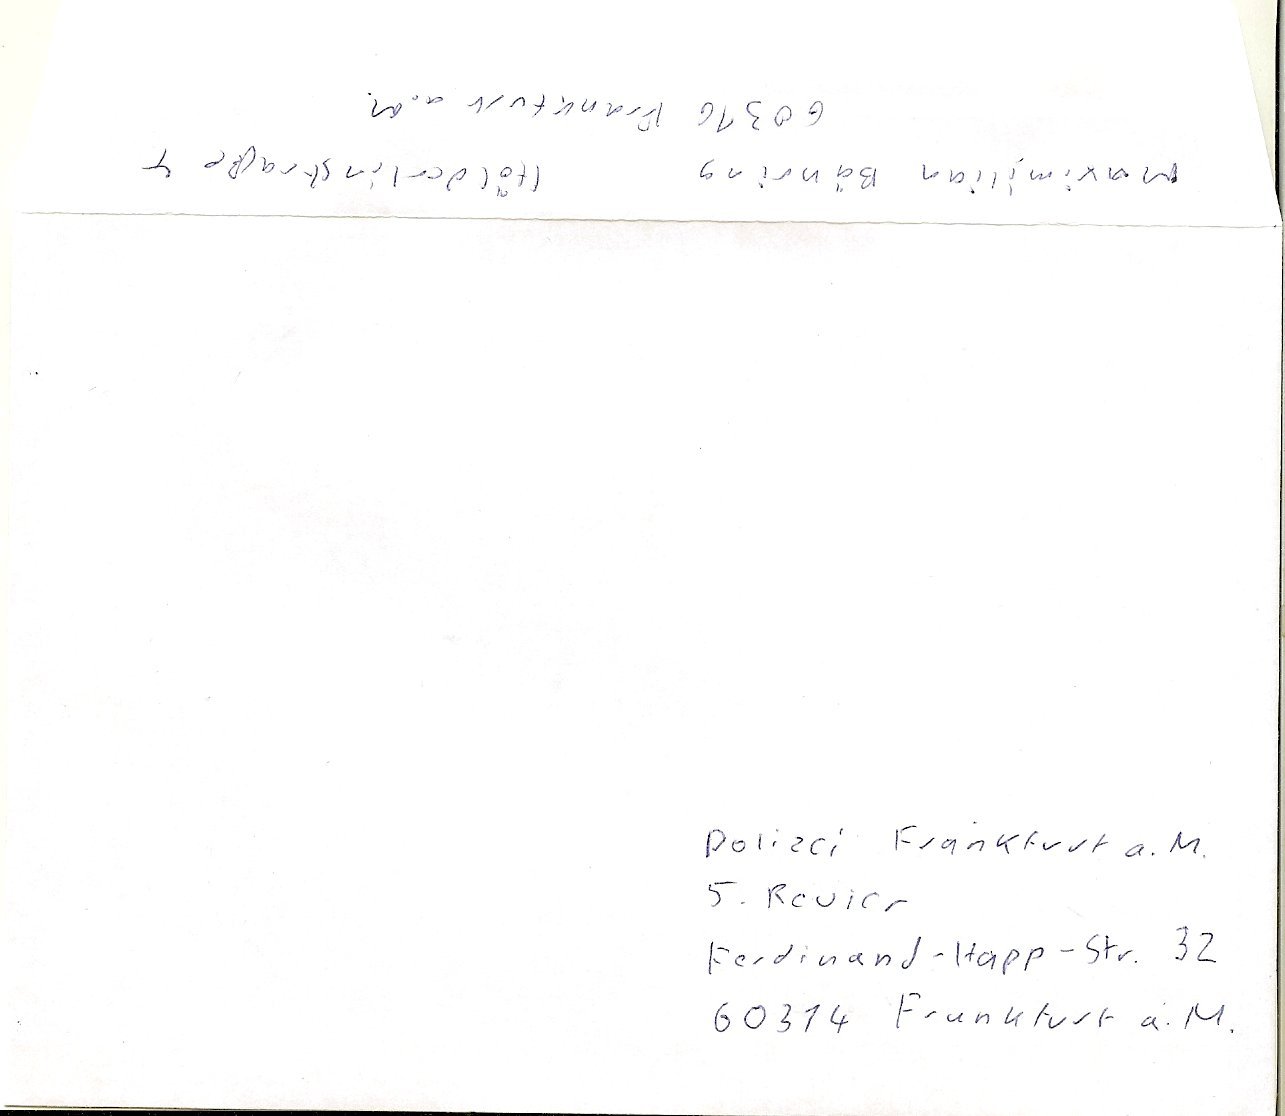 Maximilian Bähring Hölderlinstraße 4
60316 Frankfurt a.M.
Polizei Frankfurt a.M.
5. Revier
Ferdinand-Happ-Str. 32
60314 Frankfurt a.M.